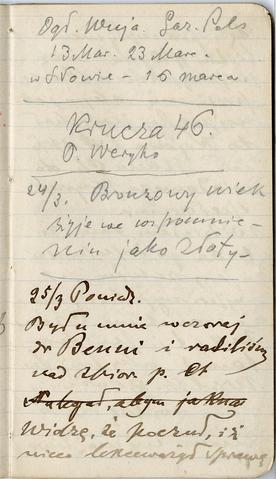 Ogł. Wuja. Gaz. Pols
13 Mar. 23 Marc.
w Słowie – 15 marca
Krucza 46.
P. Weryho
24/3. Bronzowy wiek
żyje we wspomnie-
niu jako złoty –
25/3 Poniedz.
Był u mnie wczoraj
dr Benni i radiliśmy
nad zbior. p.
Nalegał, abym
Widzę, że poczuł, iż
nieco lekceważył sprawę